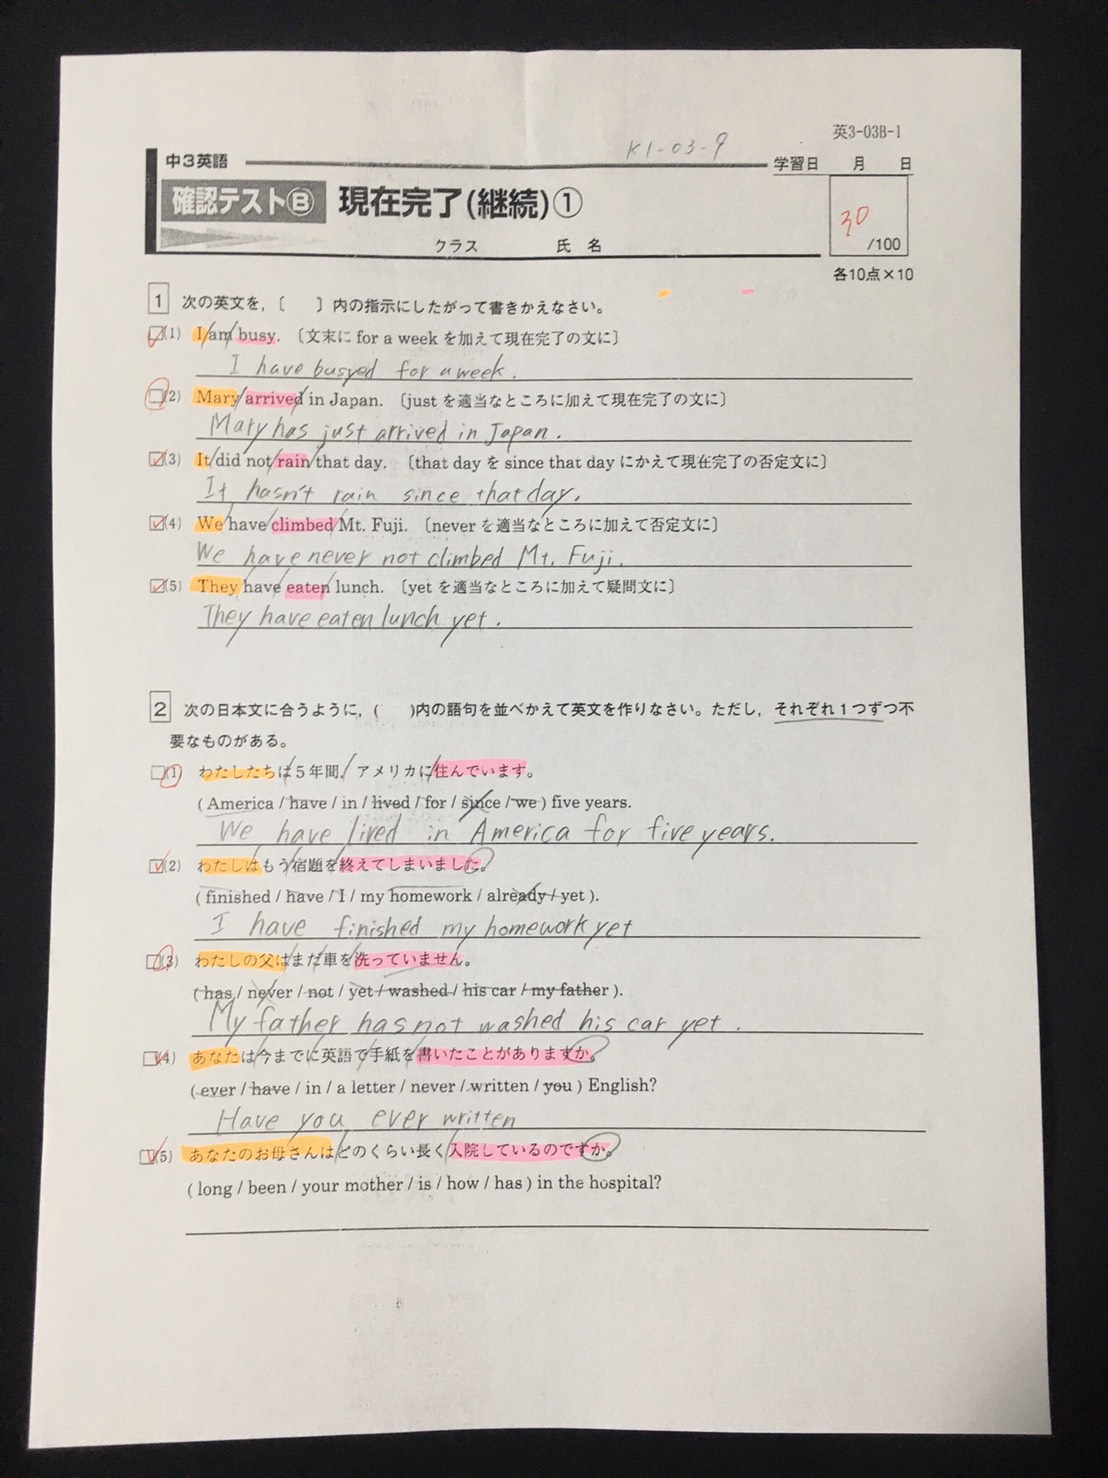 英3-03B-1
K1-03-9
中3英語
学習日 月 日
確認テストⒷ 現在完了(継続)①
30
/100
クラス 氏名
各10点×10
1 次の英文を,〔 〕内の指示にしたがって書きかえなさい。
(1) I am busy. 〔文末に for a week を加えて現在完了の文に〕
I have busyed for a week.
(2) Mary arrived in Japan. 〔just を適当なところに加えて現在完了の文に〕
Mary has just arrived in Japan.
(3) It did not rain that day. 〔that day を since that day にかえて現在完了の否定文に〕
It hasn't rain since that day.
(4) We have climbed Mt. Fuji. 〔never を適当なところに加えて否定文に〕
We have never not climbed Mt. Fuji.
(5) They have eaten lunch. 〔yet を適当なところに加えて疑問文に〕
They have eaten lunch yet.
2 次の日本文に合うように,( )内の語句を並べかえて英文を作りなさい。ただし,それぞれ1つずつ不
要なものがある。
(1) わたしたちは5年間,アメリカに住んでいます。
( America / have / in / lived / for / since / we ) five years.
We have lived in America for five years.
(2) わたしはもう宿題を終えてしまいました。
( finished / have / I / my homework / already / yet ).
I have finished my homework yet
(3) わたしの父はまだ車を洗っていません。
( has / never / not / yet / washed / his car / my father ).
My father has not washed his car yet.
(4) あなたは今までに英語で手紙を書いたことがありますか。
( ever / have / in / a letter / never / written / you ) English?
Have you ever written
(5) あなたのお母さんはどのくらい長く入院しているのですか。
( long / been / your mother / is / how / has ) in the hospital?